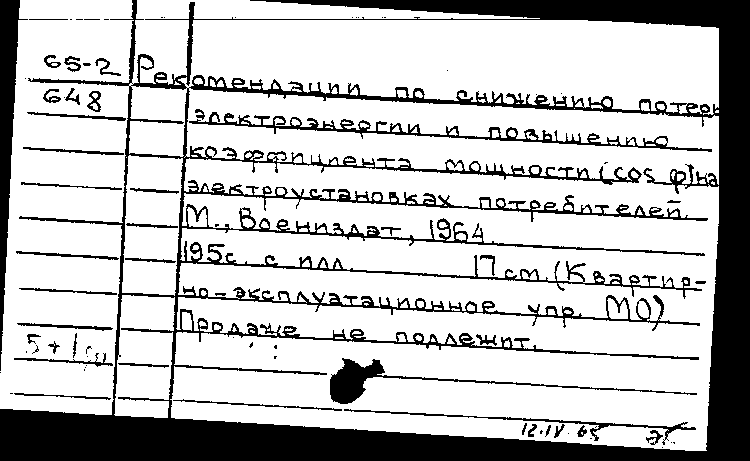 65-2 Рекомендации по снижению потерь
648 электроэнергии и повышению
коэффициента мощности (cos φ) на
электроустановках потребителей.
М., Воениздат, 1964.
195с. с илл. 17 см. (Квартир-
но-эксплуатационное упр. МО)
Продаже не подлежит.
5+1
12.IV.65